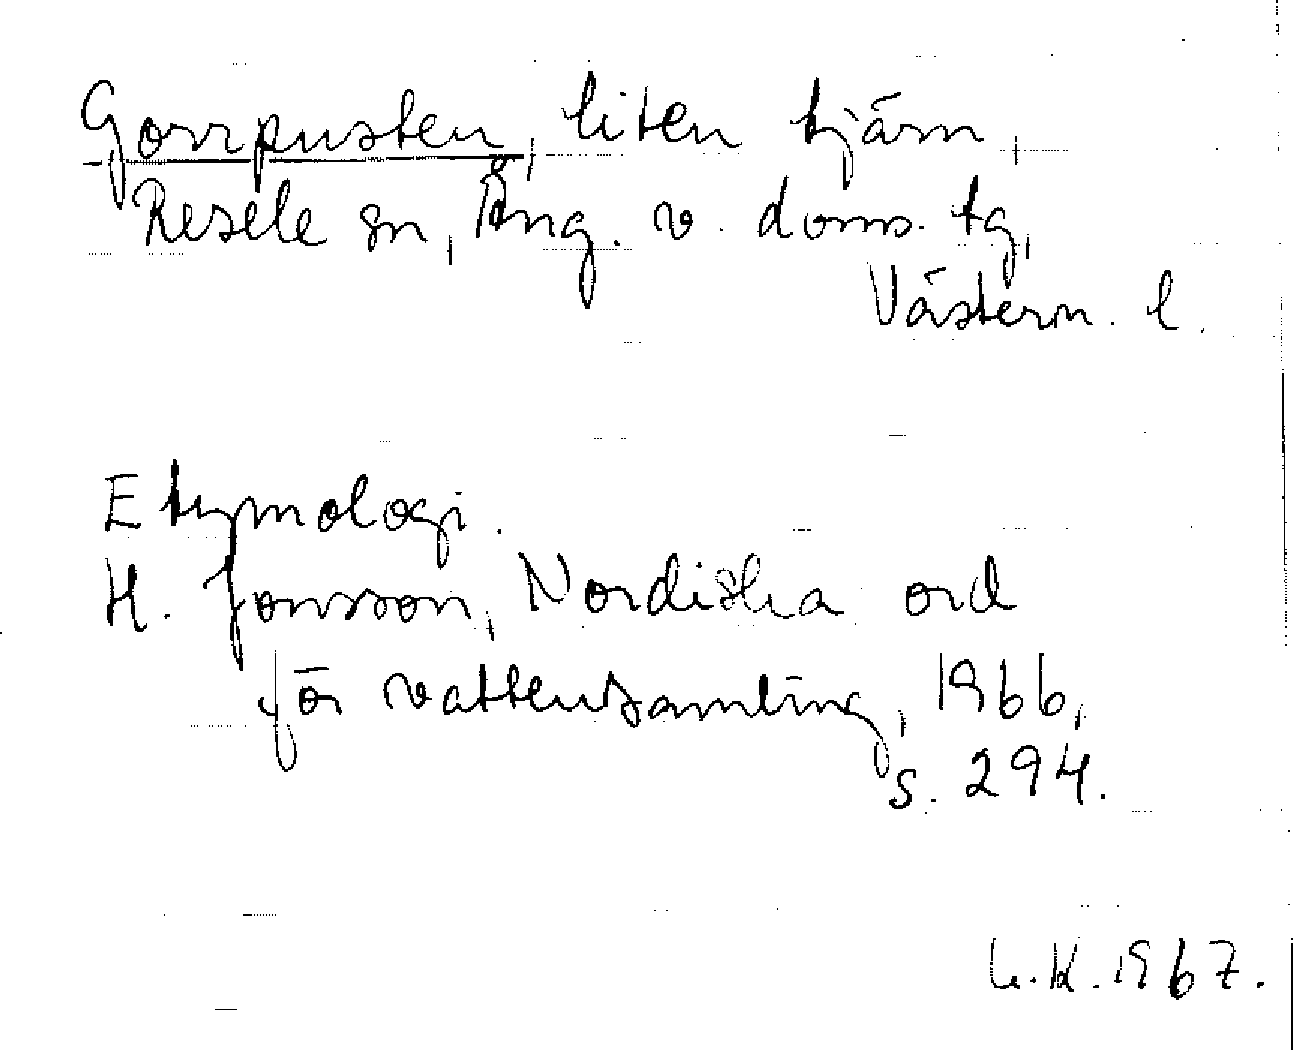 Gorrpusten, liten tjärn,
Resele sn, Ång. v. doms. tg,
Västern. l.
Etymologi.
H. Jonsson, Nordiska ord
för vattensamling, 1966,
s. 294.
L.K. 1967.